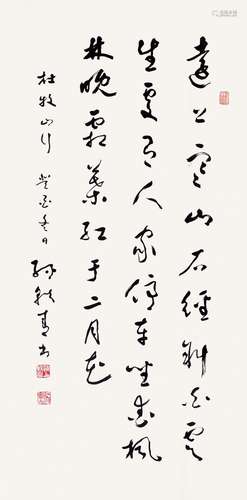 遠上寒山石徑斜白雲
生處有人家停車坐愛楓
林晚霜葉紅于二月花
杜牧山行 冬日 孫軼青書